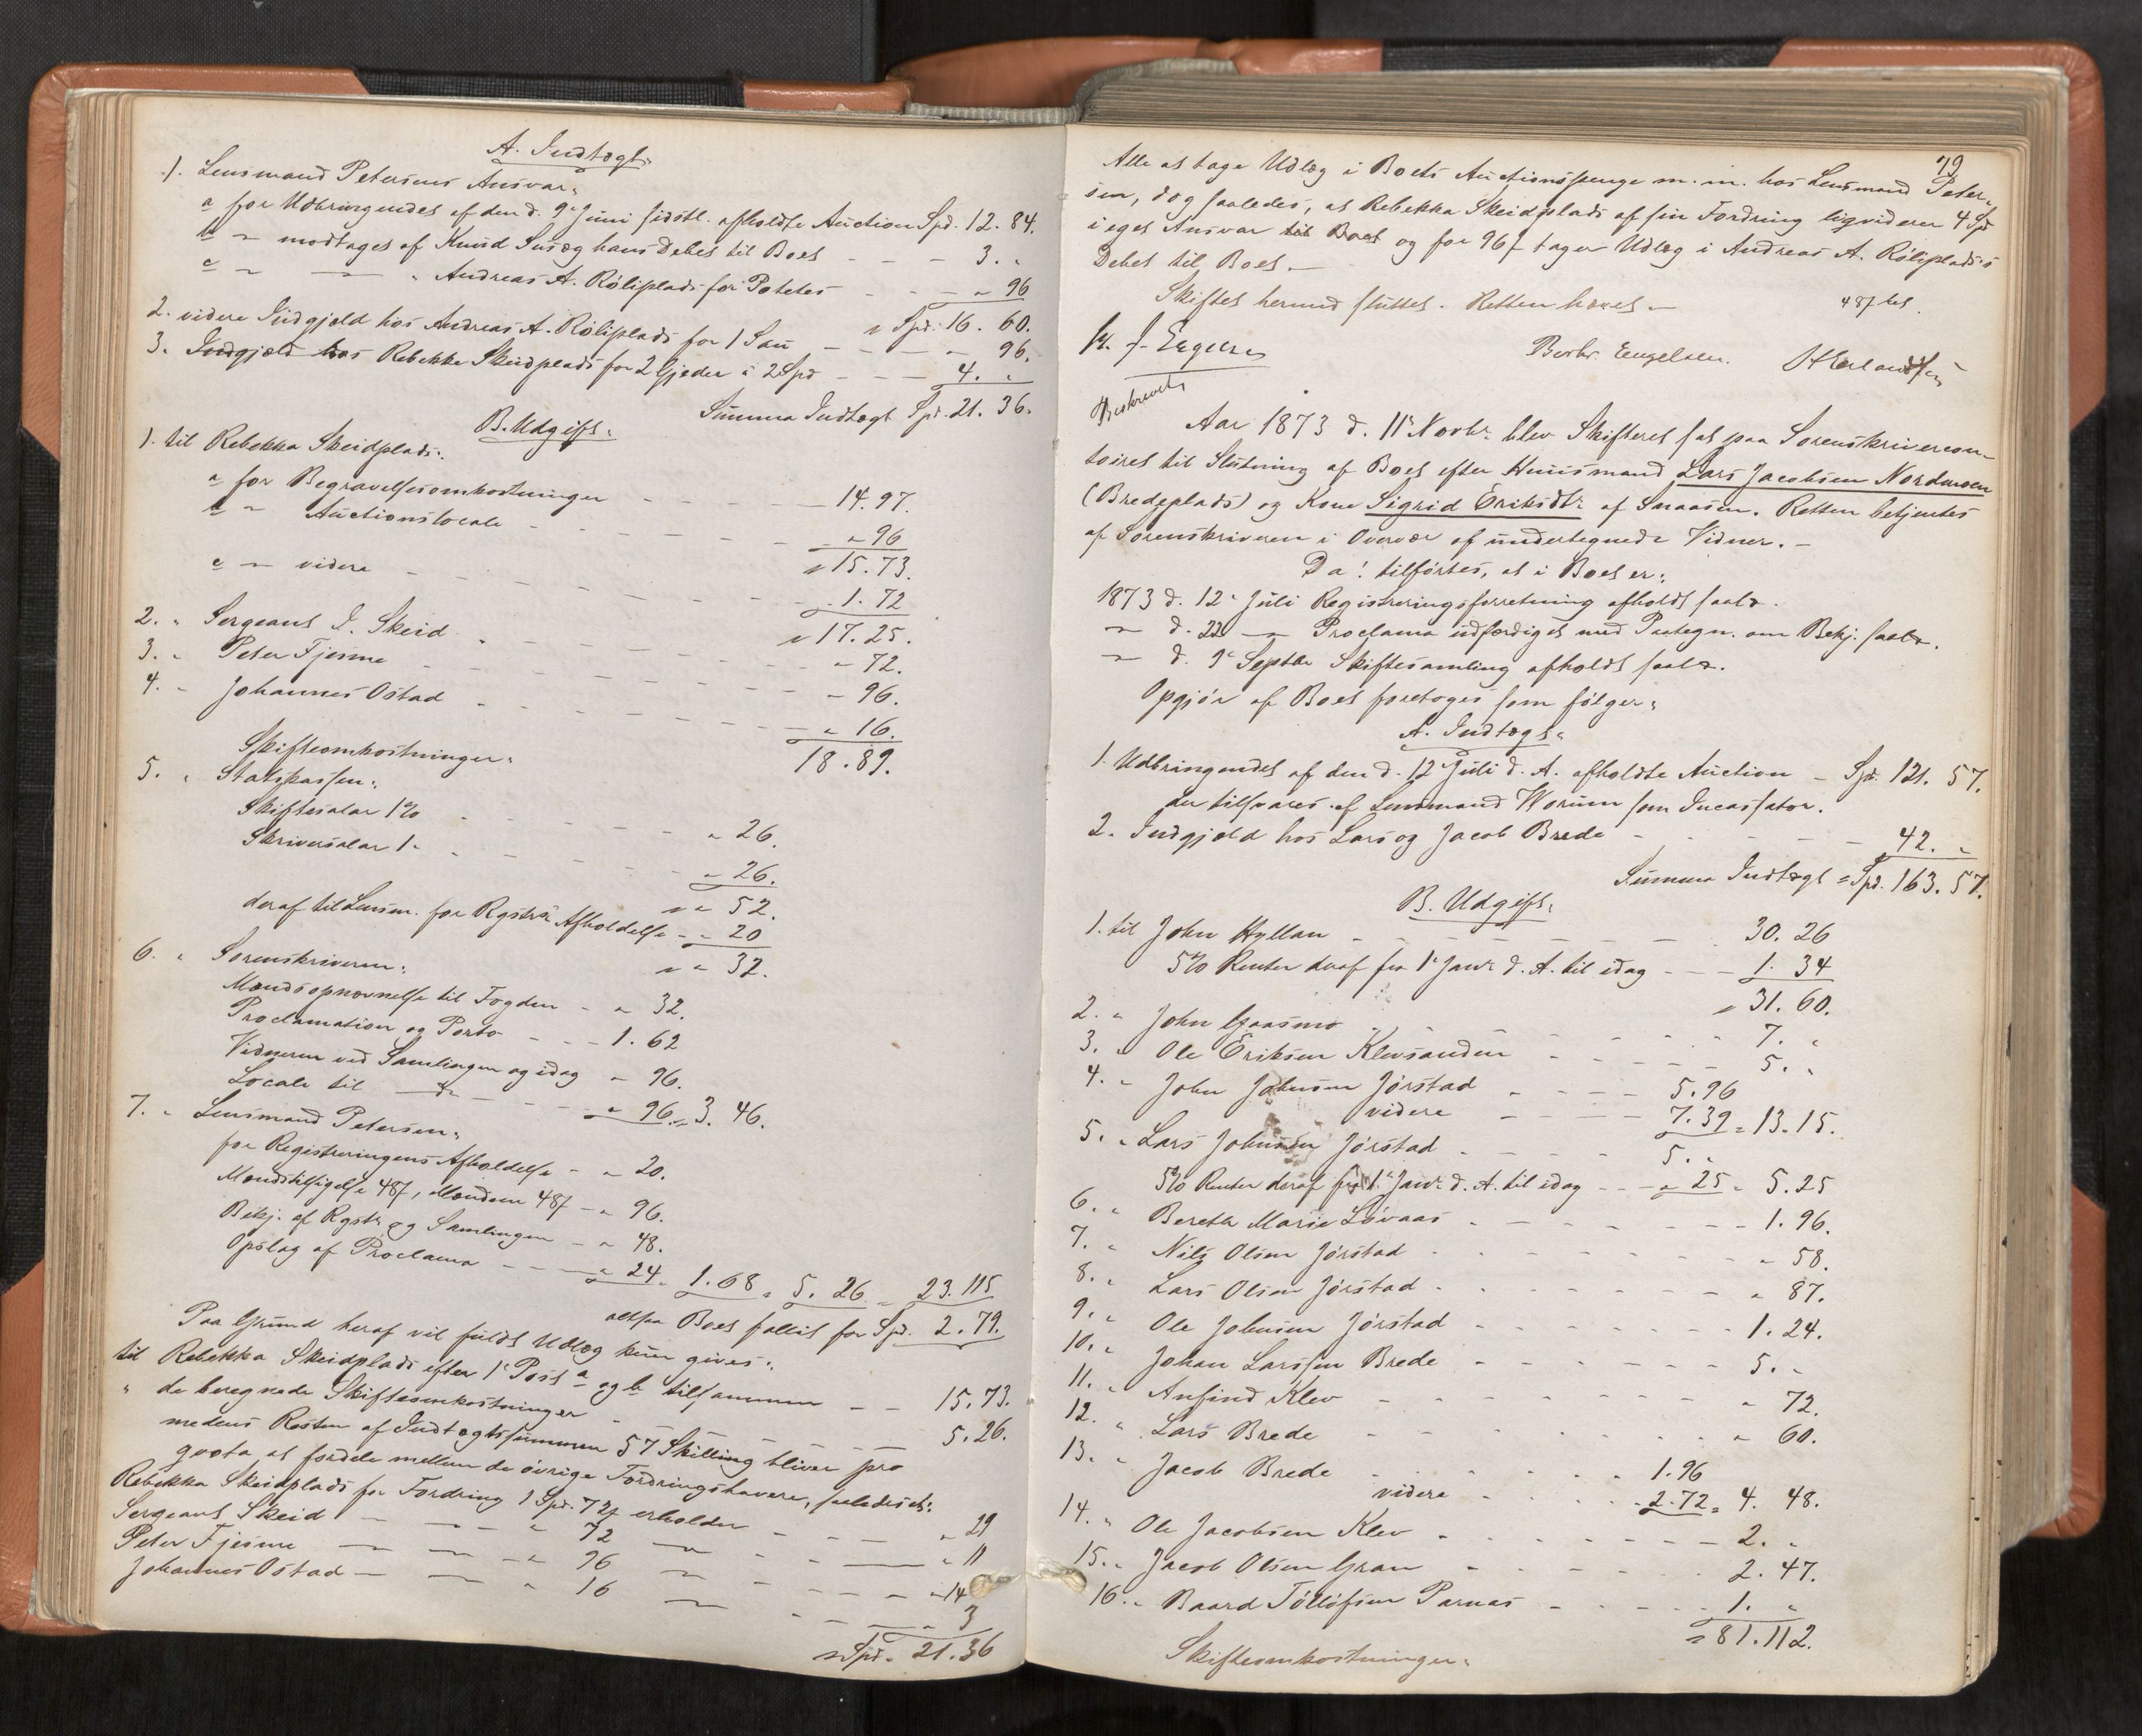 A. Indtægt:
1. Lensmand Petersens Ansvar:
a for Udbringendet af den d. 9e Juni sidstl. afholdte Auction Spd. 12. 84.
b " modtaget af Knud Susæg hans Debet til Boet - - - 3. "
c " — " Andreas A. Röliplads for Poteter - - - " 96
= Spd. 16. 60.
2. videre Indgjeld hos Andreas A. Röliplads for 1 Sau - - - - 96.
3. Indgjæld hos Rebekka Skeidplads for 2 Gjeder á 2 Spd - - - 4. "
Summa Indtægt Spd. 21. 36.
B. Udgift:
1. til Rebekka Skeidplads:
a for Begravelsesomkostninger - - - 14. 97.
b " Auctionslocale - - - " 96
= 15. 73.
c " videre - - - 1. 72
= 17. 25.
2. " Sergeant I. Skeid - - - " 72.
3. " Peter Fjesme - - - " 96.
4. " Johannes Ostad - - - " 16.
18. 89.
Skifteomkostninger:
5. " Statskassen:
Skiftesalar 1% - - - " 26.
Skriversalar 1 " - - - " 26.
= " 52.
deraf til Lensm. for Rgstrs Afholdelse - " 20
= " 32.
6. " Sorenskriveren:
Mændsopnævnelse til Fogden - " 32.
Proclamation og Porto - - - 1. 62
Vidnerne ved Samlingen og idag " 96.
Locale til — do — - - " 96. = 3. 46.
7. " Lensmand Petersen:
for Registreringens Afholdelse - " 20.
Mændstilsigelse 48 f, Mændene 48 f - " 96.
Bekj. af Rgstr. og Samlingen - " 48.
Opslag af Proclama - - " 24. 1. 68 = 5. 26 = 23. 115
altsaa Boet fallit for Spd. 2. 79.
Paa Grund heraf vil fuldt Udlæg kun gives:
til Rebekka Skeidplads efter 1e Post a og b tilsammen - - 15. 73.
" de beregnede Skifteomkostninger - - - 5. 26.
medens Resten af Indtægtssummen 57 Skilling bliver pro
qvota at fordele mellem de övrige Fordringshavere, saaledes at:
Rebekka Skeidplads for Fordring 1 Spd. 72 f erholder - - " 29
Sergeant Skeid — — " 72 — - - " 11
Peter Fjesme — — " 96 — - - " 14
Johannes Ostad — — " 16 — - - " 3
= Spd. 21. 36
79
Alle at tage Udlæg i Boets Auctionspenge m. m. hos Lensmand Peter-
sen, dog saaledes, at Rebekka Skeidplads af sin Fordring liqviderer 4 Spd
i eget Ansvar til Boet og for 96 f tager Udlæg i Andreas A. Röliplads's
Debet til Boet. —
Skiftet hermed sluttet. Retten hævet. —
48 f bet.
Berbr. Engelsen.
Beskrevet
Aar 1873 d. 11e Novbr. blev Skifteret sat paa Sorenskrivercon-
toiret til Slutning af Boet efter Huusmand Lars Jacobsen Nordmoen
(Bredeplads) og Kone Sigrid Eriksdtr: af Snaasen. Retten betjentes
af Sorenskriveren i Overvær af undertegnede Vidner. —
Da! tilförtes, at i Boet er:
1873 d. 12e Juli Registreringsforretning afholdt saal. .
" d. 22 " Proclama udfærdiget med Paategn. om Bekj. saal. .
" d. 9e Septbr Skiftesamling afholdt saal. .
Opgjör af Boet foretoges som fölger:
A. Indtægt:
1. Udbringendet af den d. 12e Juli d. A. afholdte Auction - Spd. 121. 57.
der tilsvares af Lensmand Worum som Incassator.
2. Indgjæld hos Lars og Jacob Brede - - - 42. "
Summa Indtægt = Spd. 163. 57.
B. Udgift:
1. til John Hyllan - - - 30. 26
5% Renter deraf fra 1e Janr. d. A. til idag - - - 1. 34
= 31. 60.
2. " John Gaasmo - - - 7. "
3. " Ole Eriksen Klevsanden - - - 5. "
4. " John Johnsen Jörstad - - - 5. 96
videre - - - 7. 39 = 13. 15.
5. " Lars Johnsen Jörstad - - - 5. "
5% Renter deraf fra 1e Janr. d. A. til idag - - " 25 = 5. 25
6. " Bereth Marie Lövaas - - - 1. 96.
7. " Nils Olsen Jörstad - - - " 58.
8. " Lars Olsen Jörstad - - - " 87.
9. " Ole Johnsen Jörstad - - - 1. 24.
10. " Johan Larssen Brede - - - 5. "
11. " Anfind Klev - - - " 72.
12. " Lars Brede - - - " 60.
13. " Jacob Brede - - - 1. 96
videre - - - 2. 72 = 4. 48.
14. " Ole Jacobsen Klev - - - 2. "
15. " Jacob Olsen Gran - - - 2. 47.
16. " Baard Töllöfsen Parnas - - - 1. "
= 81. 112.
Skifteomkostninger: